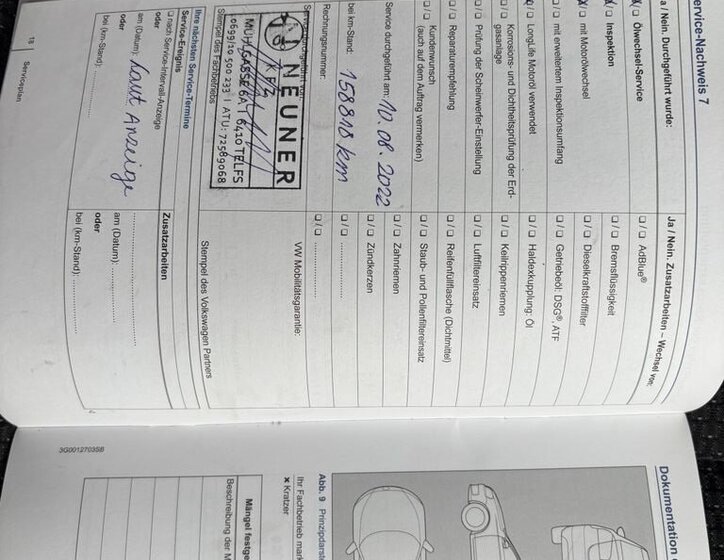 Service-Nachweis 7
Ja / Nein. Durchgeführt wurde:
☐ Ölwechsel-Service
☐ Inspektion
☐ mit Motorölwechsel
☐ / ☐ mit erweitertem Inspektionsumfang
☐ LongLife Motoröl verwendet
☐ / ☐ Korrosions- und Dichtheitsprüfung der Erd-
gasanlage
☐ / ☐ Prüfung der Scheinwerfer-Einstellung
☐ / ☐ Reparaturempfehlung
☐ / ☐ Kundenwunsch
(auch auf dem Auftrag vermerken)
Service durchgeführt am: 10.08.2022
bei km-Stand: 158818 km
Rechnungsnummer:
Service durchgeführt von:
NEUNER
KFZ
MUHLGASSE 6A | 6410 TELFS
0699/10 500 233 | ATU: 72589068
Stempel des Fachbetriebs
Ja / Nein. Zusatzarbeiten – Wechsel von:
☐ / ☐ AdBlue®
☐ / ☐ Bremsflüssigkeit
☐ / ☐ Dieselkraftstofffilter
☐ / ☐ Getriebeöl: DSG®, ATF
☐ / ☐ Haldexkupplung: Öl
☐ / ☐ Keilrippenriemen
☐ / ☐ Luftfiltereinsatz
☐ / ☐ Reifenfüllflasche (Dichtmittel)
☐ / ☐ Staub- und Pollenfiltereinsatz
☐ / ☐ Zahnriemen
☐ / ☐ Zündkerzen
☐ / ☐ ....................
☐ / ☐ ....................
VW Mobilitätsgarantie:
Stempel des Volkswagen Partners
Ihre nächsten Service-Termine
Service-Ereignis
☐ nach Service-Intervall-Anzeige
oder
am (Datum): laut Anzeige
oder
bei (km-Stand): ....................
Zusatzarbeiten
....................
am (Datum): ....................
oder
bei (km-Stand): ....................
18 Serviceplan
3G0012703SB
Dokumentation
Abb. 9 Prinzipdarst
Ihr Fachbetrieb mark
× Kratzer
Mängel festge
Beschreibung der M